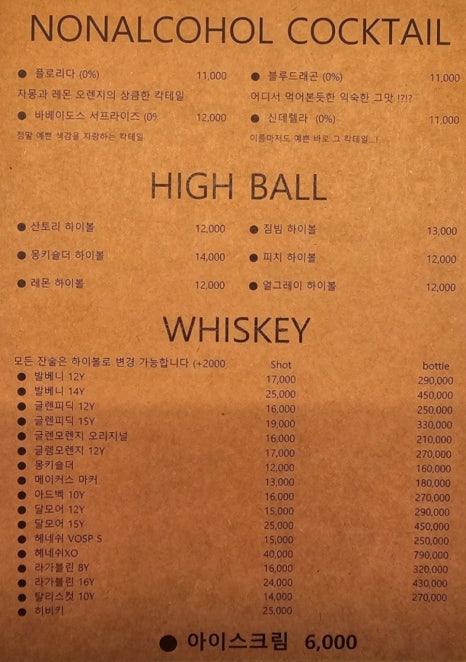 NONALCOHOL COCKTAIL
● 플로리다 (0%) 11,000 ● 블루드래곤 (0%) 11,000
자몽과 레몬 오렌지의 상큼한 칵테일 어디서 먹어본듯한 익숙한 그맛 !?!?
● 바베이도스 서프라이즈 (0% 12,000 ● 신데렐라 (0%) 11,000
정말 예쁜 색감을 자랑하는 칵테일 이름마저도 예쁜 바로 그 칵테일...!
HIGH BALL
● 산토리 하이볼 12,000 ● 짐빔 하이볼 13,000
● 몽키숄더 하이볼 14,000 ● 피치 하이볼 12,000
● 레몬 하이볼 12,000 ● 얼그레이 하이볼 12,000
WHISKEY
모든 잔술은 하이볼로 변경 가능합니다 (+2000 Shot bottle
● 발베니 12Y 17,000 290,000
● 발베니 14Y 25,000 450,000
● 글렌피딕 12Y 16,000 250,000
● 글렌피딕 15Y 19,000 330,000
● 글렌모렌지 오리지널 16,000 210,000
● 글램모렌지 12Y 17,000 270,000
● 몽키숄더 12,000 160,000
● 메이커스 마커 13,000 180,000
● 아드벡 10Y 16,000 270,000
● 달모어 12Y 15,000 290,000
● 달모어 15Y 25,000 450,000
● 헤네쉬 VOSP S 15,000 250,000
● 헤네쉬XO 40,000 790,000
● 라가불린 8Y 16,000 320,000
● 라가불린 16Y 24,000 430,000
● 탈리스컷 10Y 14,000 270,000
● 히비키 25,000
● 아이스크림 6,000